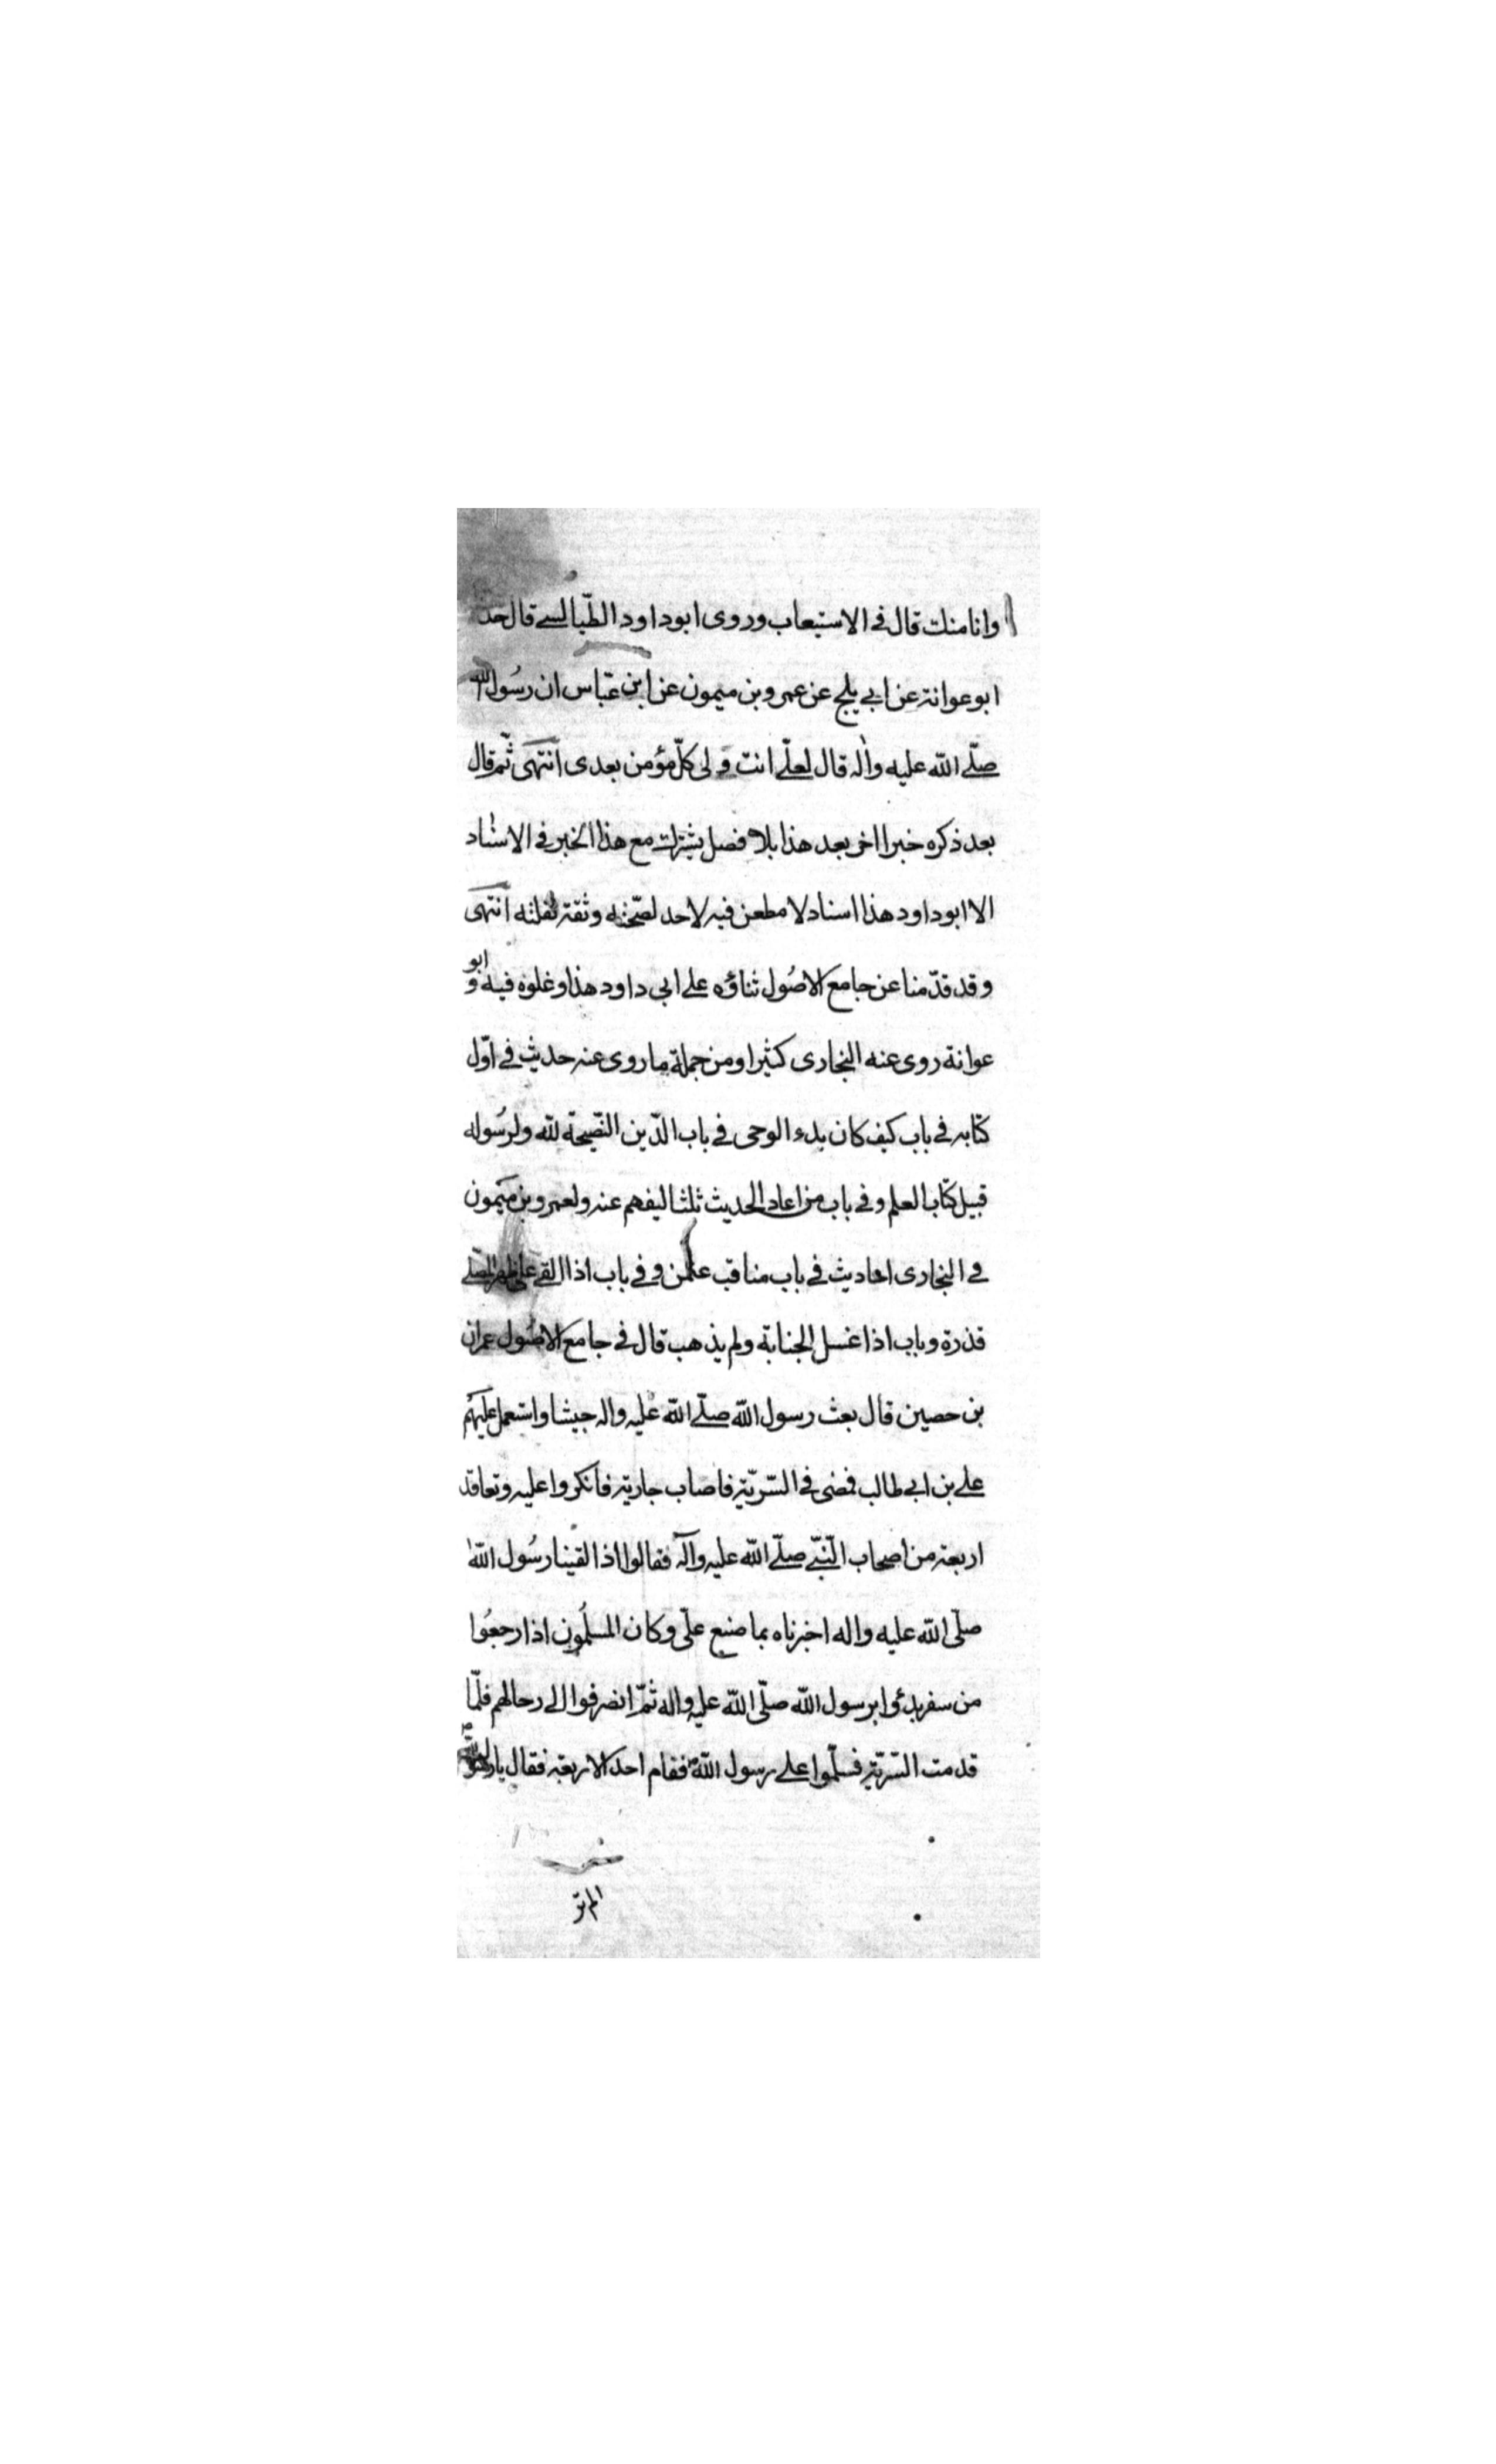 وانا منك قال في الاستيعاب وروى ابوداود الطيالسے قال حد
ابو عوانة عن ابي بلج عن عمرو بن ميمون عن ابن عبّاس ان رسُول الله
صلّے الله عليه واله قال لعلّے انت ولى كلّ مؤمن بعدى انتهى ثمّ قال
بعد ذكره خبرا اخر بعد هذا بلا فصل يشترك مع هذا الخبر في الاسناد
الا ابوداود هذا اسناد لا مطعن فيه لاحد لصحّته وثقة نقلته انتهى
وقد قدّمنا عن جامع الاصُول ثناؤه علے ابى داود هذا وغلوه فيه وابو
عوانة روى عنه البخارى كثيرا ومن جملة ما روى عنه حديث في اوّل
كتابه في باب كيف كان بدء الوحى في باب الدّين النّصيحة لله ولرسُوله
قبيل كتاب العلم وفي باب من اعاد الحديث ثلثا ليفهم عنه ولعمرو بن ميمون
في البخارى احاديث في باب مناقب عثمن وفي باب اذا القے على ظهر المصلے
قذرة وباب اذا غسل الجنابة ولم يذهب قال في جامع الاصُول عمران
بن حصين قال بعث رسول الله صلّے الله عليه واله جيشا واستعمل عليهم
علے بن ابي طالب فمضى في السّريّة فاصاب جارية فانكروا عليه وتعاقد
اربعة من اصحاب النّبيّ صلّے الله عليه وآله فقالوا اذا لقينا رسُول الله
صلّى الله عليه واله اخبرناه بما صنع علّى وكان المسلمُون اذا رجعُوا
من سفر بدؤا برسول الله صلّى الله عليه واله ثمّ انصرفوا الى رحالهم فلمّا
قدمت السّريّة فسلّموا علے رسول الله ص فقام احد الاربعة فقال يا رسول الله
الم تر